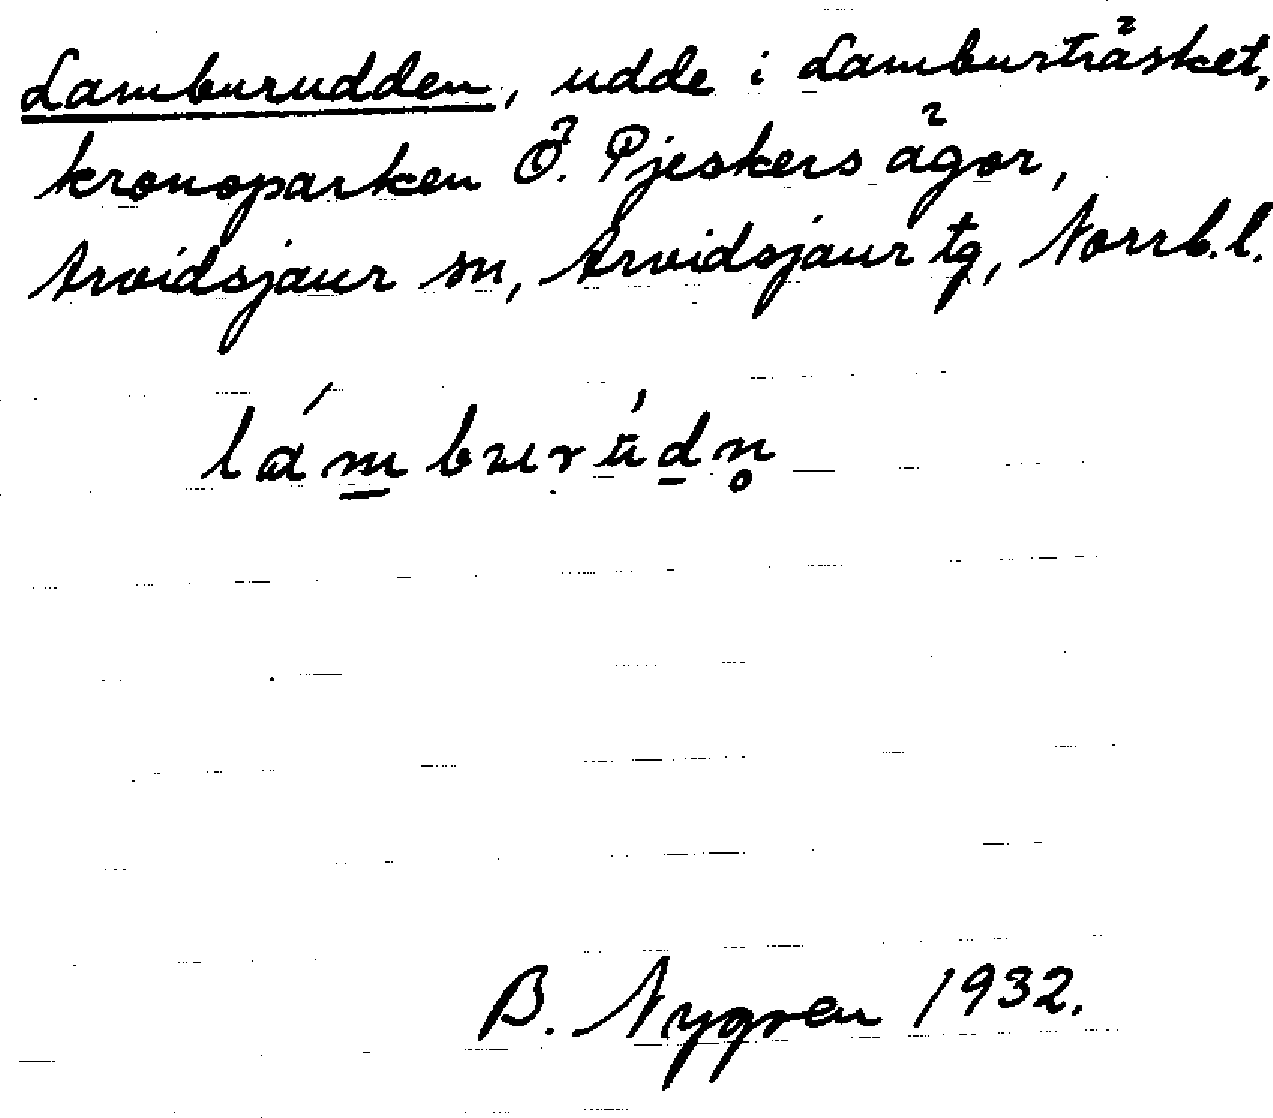 Lamburudden, udde i Lamburträsket,
kronoparken Ö. Pjeskers ägor,
Arvidsjaur sn, Arvidsjaur tg, Norrb. l.
lám̲burùd̲n̥
B. Nygren 1932.